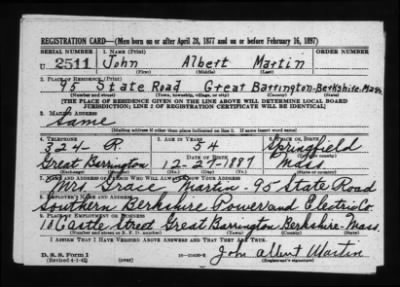 REGISTRATION CARD—(Men born on or after April 28, 1877 and on or before February 16, 1897)
SERIAL NUMBER 1. NAME (Print) ORDER NUMBER
U 2511 John Albert Martin
(First) (Middle) (Last)
2. PLACE OF RESIDENCE (Print)
95 State Road Great Barrington-Berkshire-Mass
(Number and street) (Town, township, village, or city) (County) (State)
[THE PLACE OF RESIDENCE GIVEN ON THE LINE ABOVE WILL DETERMINE LOCAL BOARD
JURISDICTION; LINE 2 OF REGISTRATION CERTIFICATE WILL BE IDENTICAL]
3. MAILING ADDRESS
Same
[Mailing address if other than place indicated on line 2. If same insert word same]
4. TELEPHONE 5. AGE IN YEARS 6. PLACE OF BIRTH
324-R 54 Springfield
DATE OF BIRTH
Great Barrington 12-27-1887 Mass.
7. NAME AND ADDRESS OF PERSON WHO WILL ALWAYS KNOW YOUR ADDRESS
Mrs. Grace Martin-95 State Road
8. EMPLOYER'S NAME AND ADDRESS
Southern Berkshire Power and Electric Co.
9. PLACE OF EMPLOYMENT OR BUSINESS
Castle Street Great Barrington Berkshire-Mass.
(Number and street or R. F. D. number) (Town) (County) (State)
I AFFIRM THAT I HAVE VERIFIED ABOVE ANSWERS AND THAT THEY ARE TRUE.
D. S. S. Form 1
(Revised 4-1-42)
John Albert Martin
(Registrant's signature)